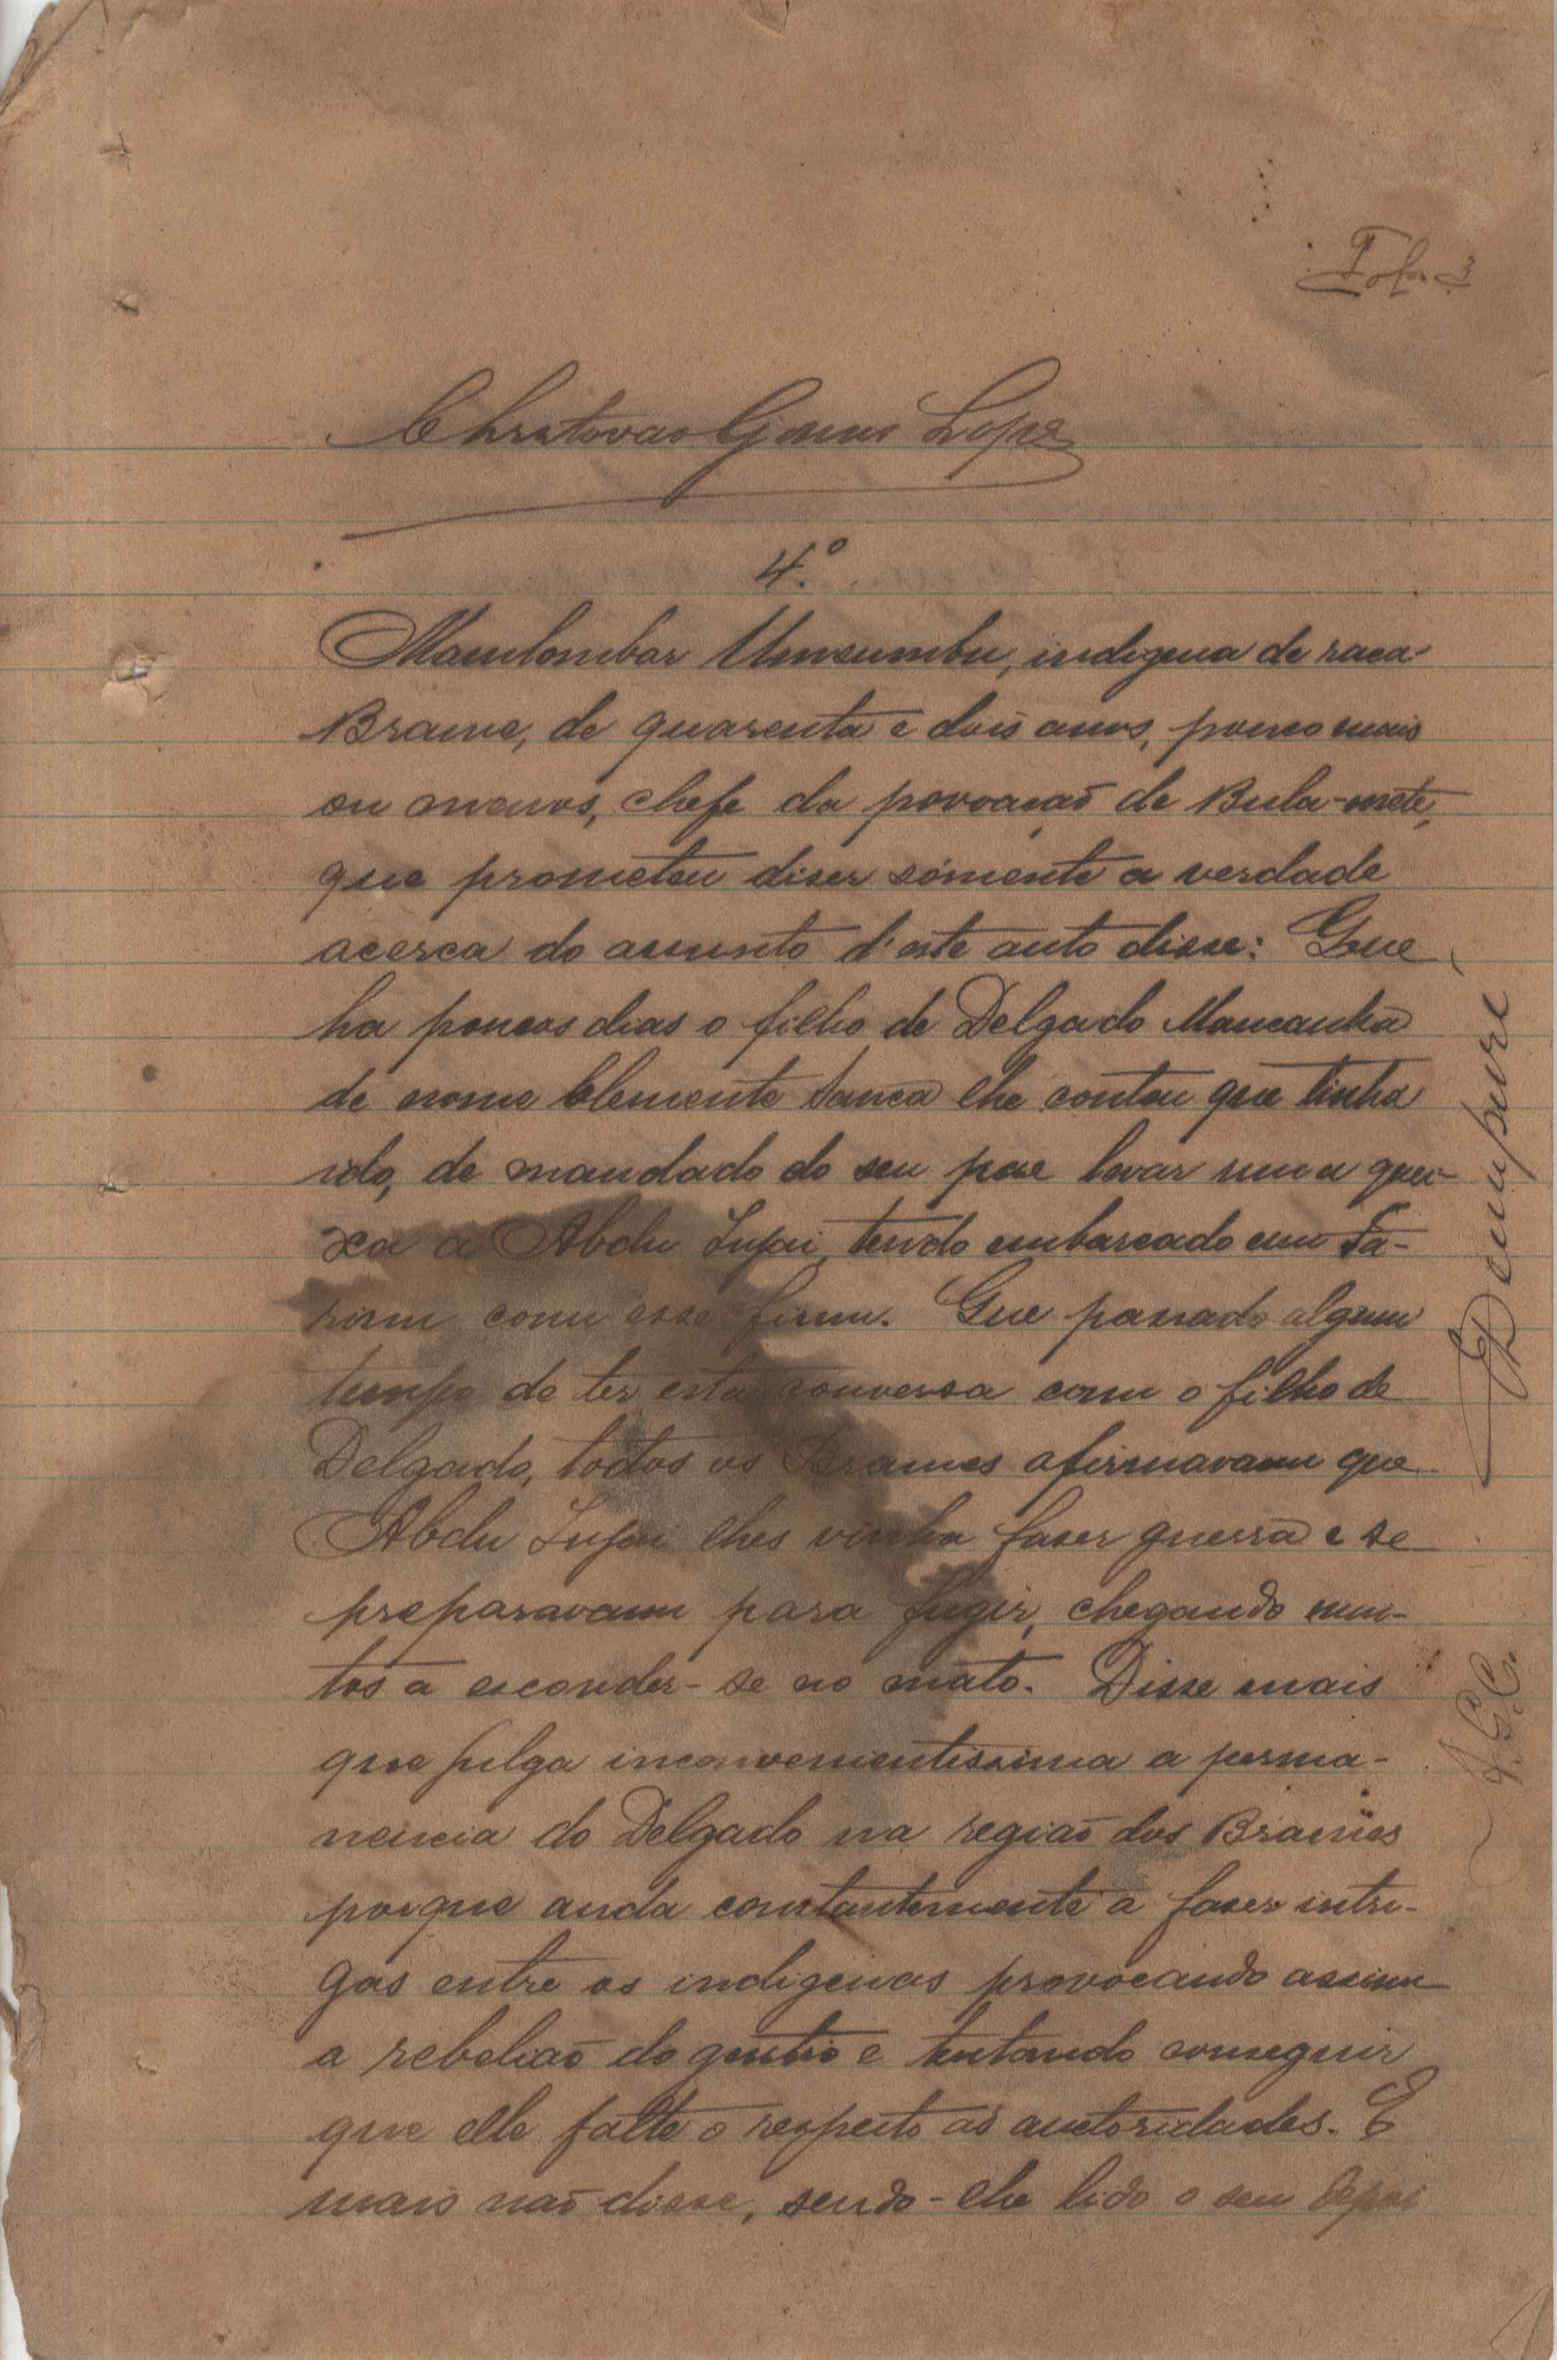 Fol. 3
Christovão Gomes Lopes
4.º
Mamlombar Umsumbu, indigena de raça
Brame, de quarenta e dois anos, pouco mais
ou menos, chefe da povoação de Bula-mete,
que prometeu diser sómente a verdade
acerca do assunto d'este auto disse: Que
ha poucos dias o filho de Delgado Mancanha
de nome Clemente Sanca lhe contou que tinha
ido, de mandado do seu pae levar uma quei-
xa a Abdu Injai, tendo embarcado em Fa-
rim com esse fim. Que passado algum
tempo de ter esta conversa com o filho de
Delgado, todos os Brames afirmavam que
Abdu Injai lhes vinha faser guerra e se
preparavam para fugir, chegando mui-
tos a esconder-se no mato. Disse mais
que julga inconvenientissima a perma-
nencia do Delgado na região dos Brames
porque anda constantemente a faser intri-
gas entre os indigenas provocando assim
a rebelião do gentio e tentando conseguir
que elle falte o respeito as auctoridades. E
mais não disse, sendo-lhe lido o seu depoi